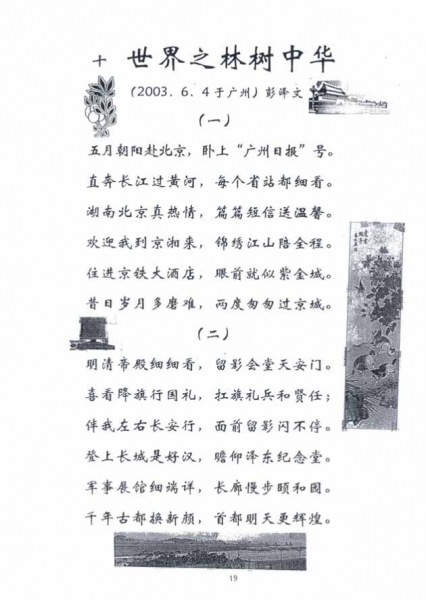 十 世界之林树中华
(2003．6．4于广州) 彭泽文
(一)
五月朝阳赴北京，卧上“广州日报”号。
直奔长江过黄河，每个省站都细看。
湖南北京真热情，篇篇短信送温馨。
欢迎我到京湘来，锦绣江山陪全程。
住进京铁大酒店，眼前就似紫金城。
昔日岁月多磨难，两度匆匆过京城。
(二)
明清帝殿细细看，留影会堂天安门。
喜看降旗行国礼，扛旗礼兵和贤任；
伴我左右长安行，面前留影闪不停。
登上长城是好汉，瞻仰泽东纪念堂。
军事展馆细端详，长廊慢步颐和园。
千年古都换新颜，首都明天更辉煌。
19